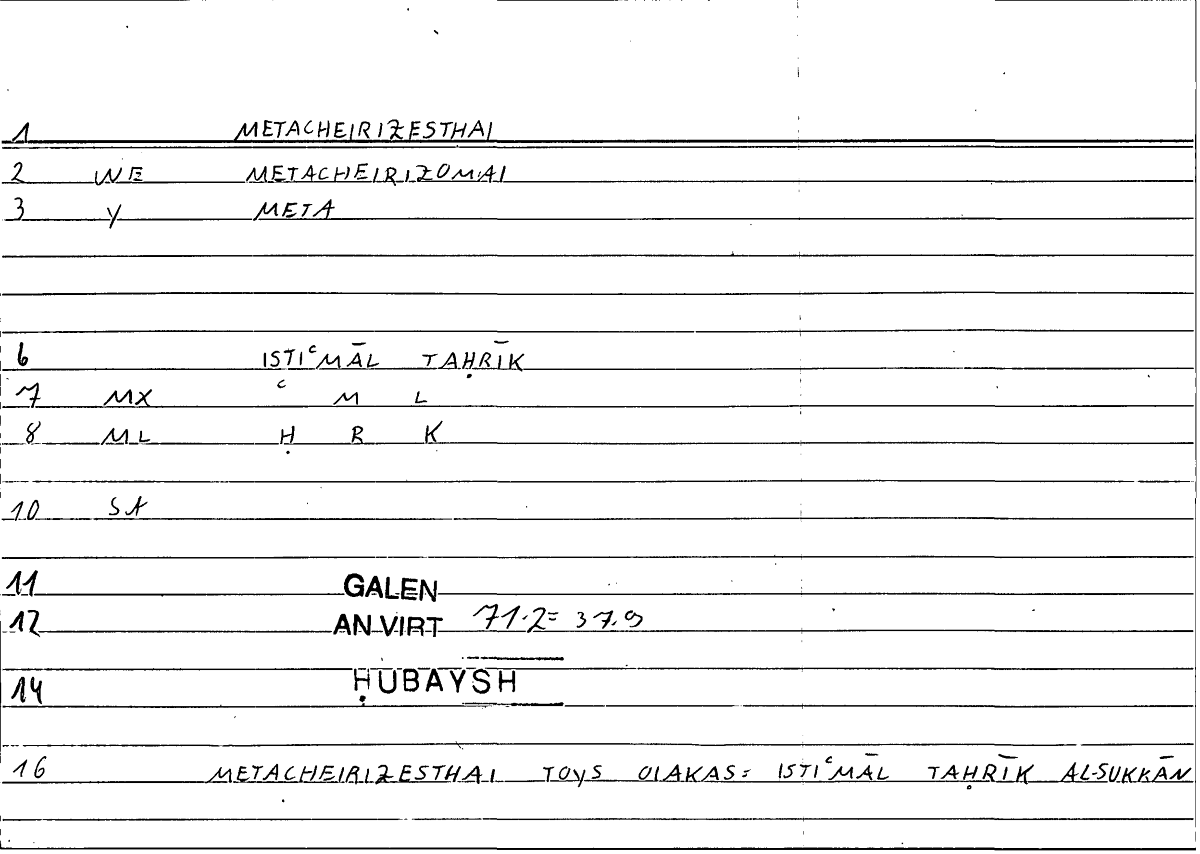 1 METACHEIRIZESTHAI
2 WE METACHEIRIZOMAI
3 Y META
6 ISTIᶜMĀL TAḤRĪK
7 MX ᶜ M L
8 ML Ḥ R K
10 SA
11 GALEN
12 AN.VIRT 71.2= 37.9
14 ḤUBAYSH
16 METACHEIRIZESTHAI TOYS OIAKAS: ISTIᶜMĀL TAḤRĪK AL-SUKKĀN